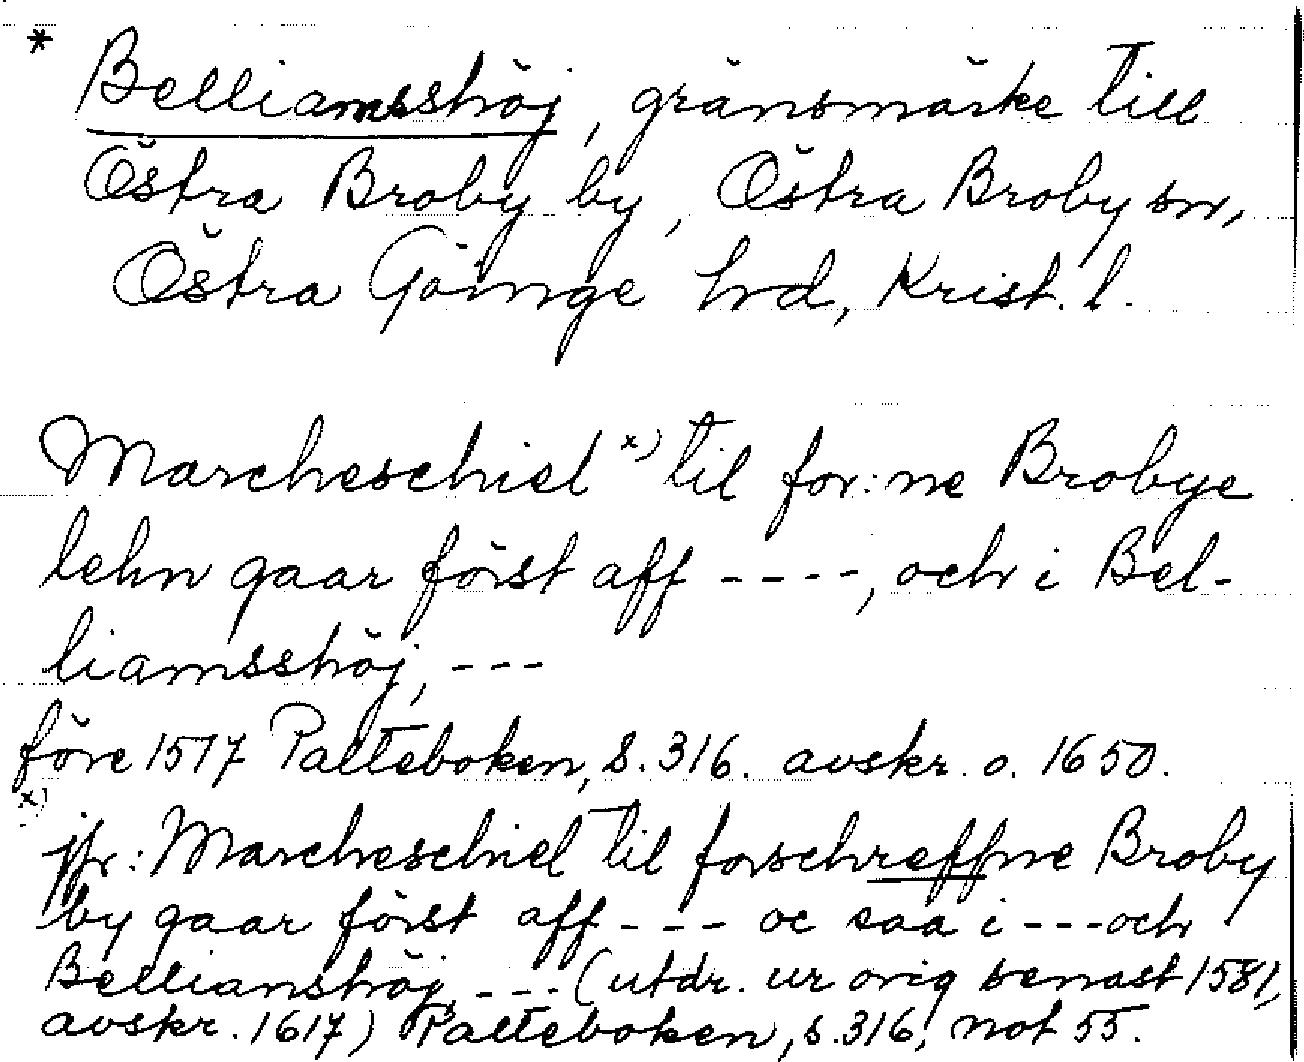 * Belliamsshöj, gränsmärke till
Östra Broby by, Östra Broby sn,
Östra Göinge hrd, Krist. l.
Marcheschiel x) til for:ne Brobye
lehn gaar först aff ----, och i Bel-
liamsshöj, ---
före 1517 Palteboken, s. 316. avskr. o. 1650.
x)
jfr: Marcheschiel til forschreffne Broby
by gaar först aff --- oc saa i --- och
Bellianshöj, --- (utdr. ur orig senast 1581,
avskr. 1617) Palteboken, s. 316, not 55.